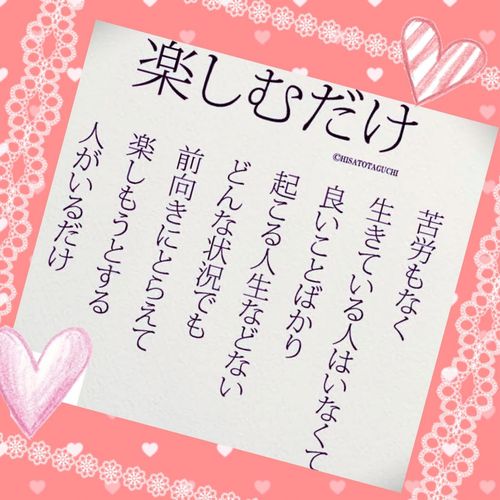 楽しむだけ
©HISATOTAGUCHI
苦労もなく
生きている人はいなくて
良いことばかり
起こる人生などない
どんな状況でも
前向きにとらえて
楽しもうとする
人がいるだけ